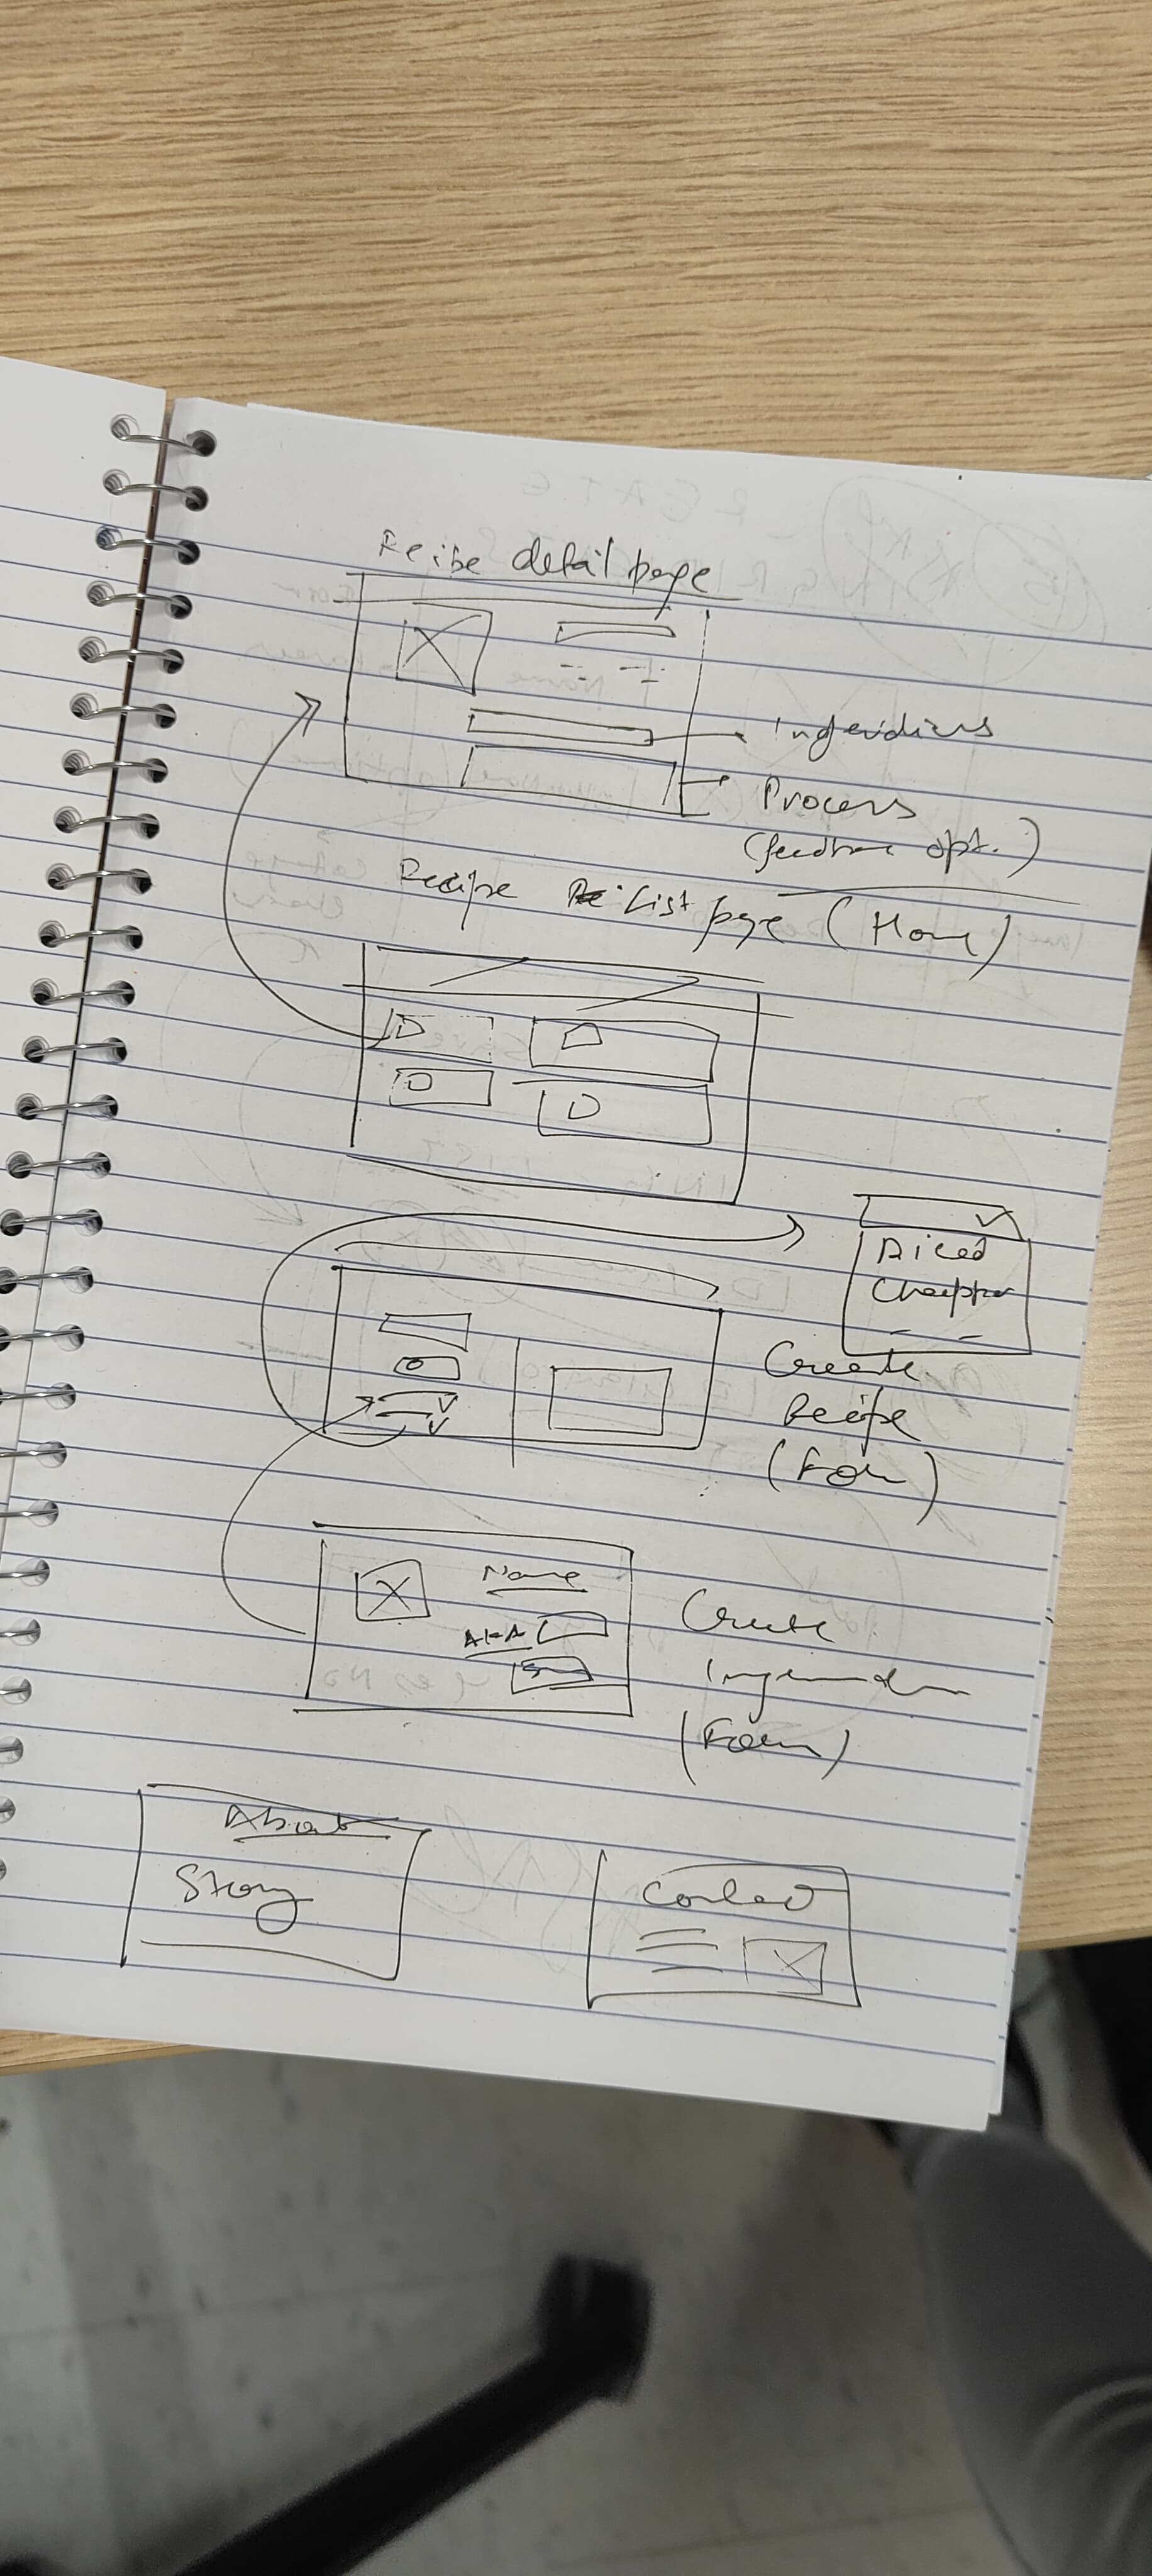 Reibe detail page
Ingridients
Process
(feedback opt.)
Recipe List page (Home)
Diced
Create
Recipe
(Form)
Name
AKA
Create
(Form)
About
Story
Contact